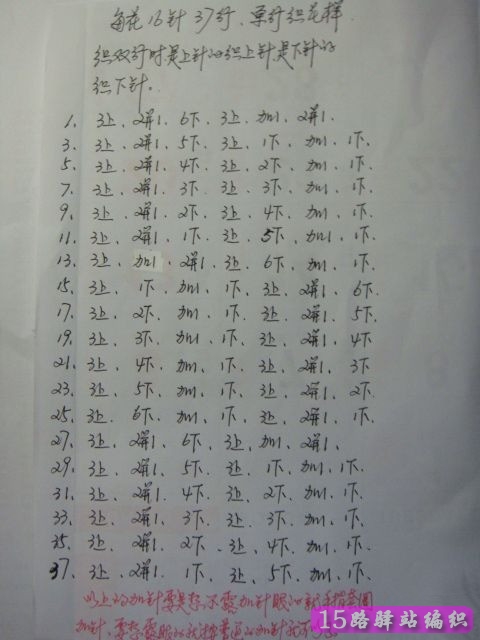 每花16针37行、单行织花样
织双行时是上针的织上针是下针的
织下针。
1、3上、2并1、6下、3上、加1、2并1、
3、3上、2并1、5下、3上、1下、加1、1下、
5、3上、2并1、4下、3上、2下、加1、1下、
7、3上、2并1、3下、3上、3下、加1、1下、
9、3上、2并1、2下、3上、4下、加1、1下、
11、3上、2并1、1下、3上、5下、加1、1下、
13、3上、加1、2并1、3上、6下、加1、1下、
15、3上、1下、加1、1下、3上、2并1、6下、
17、3上、2下、加1、1下、3上、2并1、5下、
19、3上、3下、加1、1下、3上、2并1、4下
21、3上、4下、加1、1下、3上、2并1、3下
23、3上、5下、加1、1下、3上、2并1、2下、
25、3上、6下、加1、1下、3上、2并1、1下、
27、3上、2并1、6下、3上、加1、2并1、
29、3上、2并1、5下、3上、1下、加1、1下、
31、3上、2并1、4下、3上、2下、加1、1下、
33、3上、2并1、3下、3上、3下、加1、1下、
35、3上、2并1、2下、3上、4下、加1、1下、
37、3上、2并1、1下、3上、5下、加1、1下、
以上的加针要是想不露加针眼的就
加针、要想露眼的就按普通的加针
15路驿站编织